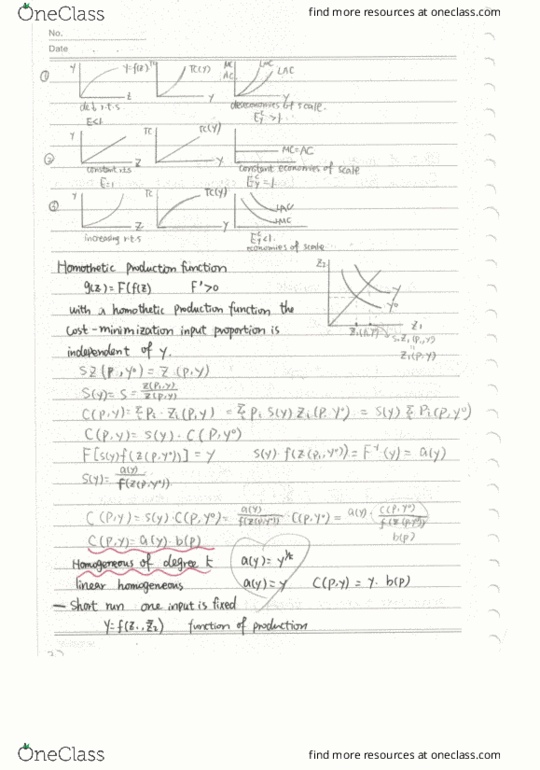 OneClass
find more resources at oneclass.com
No.
Date
① Y Y=f(z) TC TC(Y) MC AC LMC LAC
Z Y Y
de.b r.t.s diseconomies of scale.
E<1 E^c_Y >1
② Y TC TC(Y) MC=AC
Z Y
constant r.t.s constant economies of scale
E=1 E^c_Y =1
Y TC TC(Y) LAC LMC
Z Y
increasing r.t.s E^c_Y <1
economies of scale
Homothetic production function
g(z)=F(f(z)) F'>0
with a homothetic production function the
cost-minimization input proportion is
independent of y.
Z₂ Y Y⁰ Z₁
Z₁(P,Y)
S Z(P,Y⁰) = Z(P,Y)
C(P,Y) = S(Y)·C(P,Y⁰)
F[S(Y)f(Z(P,Y⁰))] = Y S(Y)·f(Z(P,Y⁰)) = F⁻¹(Y) = a(Y)
S(Y) = a(Y) / f(Z(P,Y⁰))
C(P,Y) = S(Y)·C(P,Y⁰) = a(Y)/f(Z(P,Y⁰)) · C(P,Y⁰) = a(Y) · C(P,Y⁰)/f(Z(P,Y⁰))
b(P)
C(P,Y) = a(Y)·b(P)
Homogeneous of degree k a(Y) = y^1/k
linear homogeneous a(Y) = y C(P,Y) = Y·b(P)
— Short run one input is fixed
Y=f(Z₁, Z̄₂) function of production
OneClass
find more resources at oneclass.com